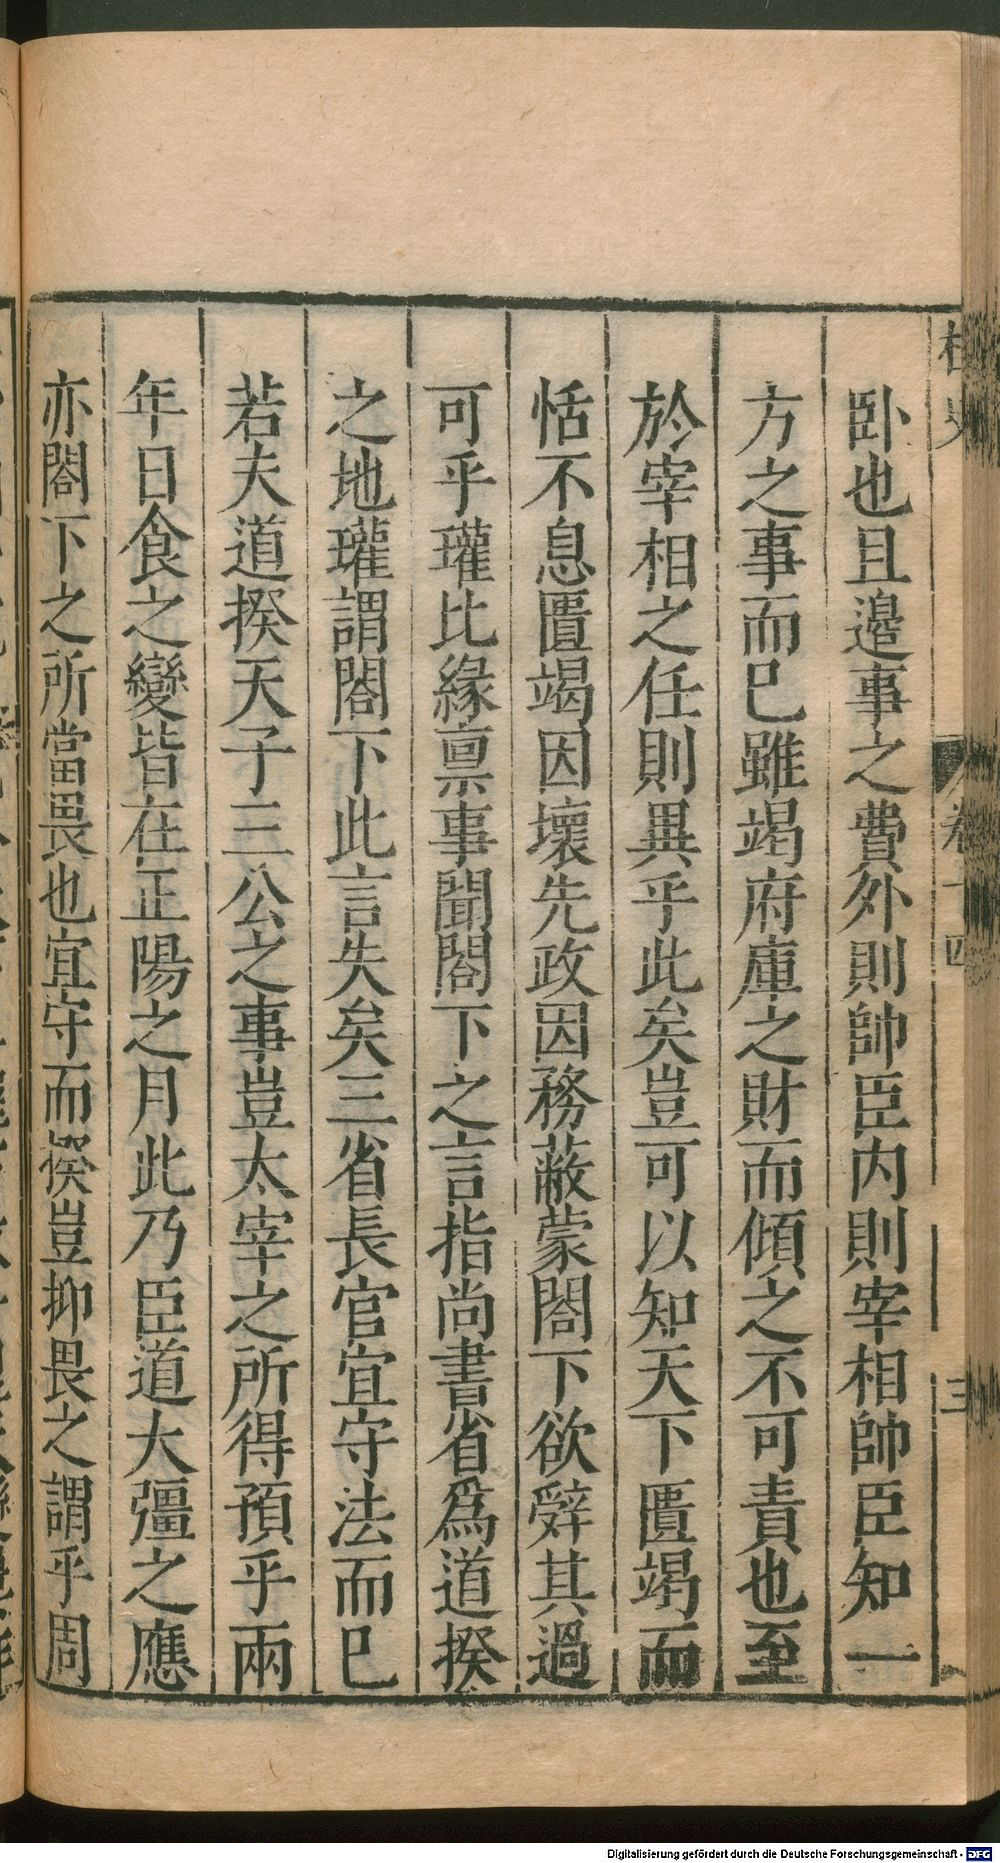 卧也且邉事之費外則帥臣内則宰相帥臣知一
方之事而巳雖竭府庫之財而傾之不可責也至
於宰相之任則異乎此矣豈可以知天下匱竭而
恬不息匱竭因壞先政因務蔽蒙閤下欲辤其過
可乎瓘比緣禀事聞閤下之言指尚書省爲道揆
之地瓘謂閤下此言失矣三省長官宜守法而巳
若夫道揆天子三公之事豈太宰之所得預乎兩
年日食之變皆在正陽之月此乃臣道大彊之應
亦閤下之所當畏也宜守而揆豈抑畏之謂乎周
卷十四
三
Digitalisierung gefördert durch die Deutsche Forschungsgemeinschaft - DFG